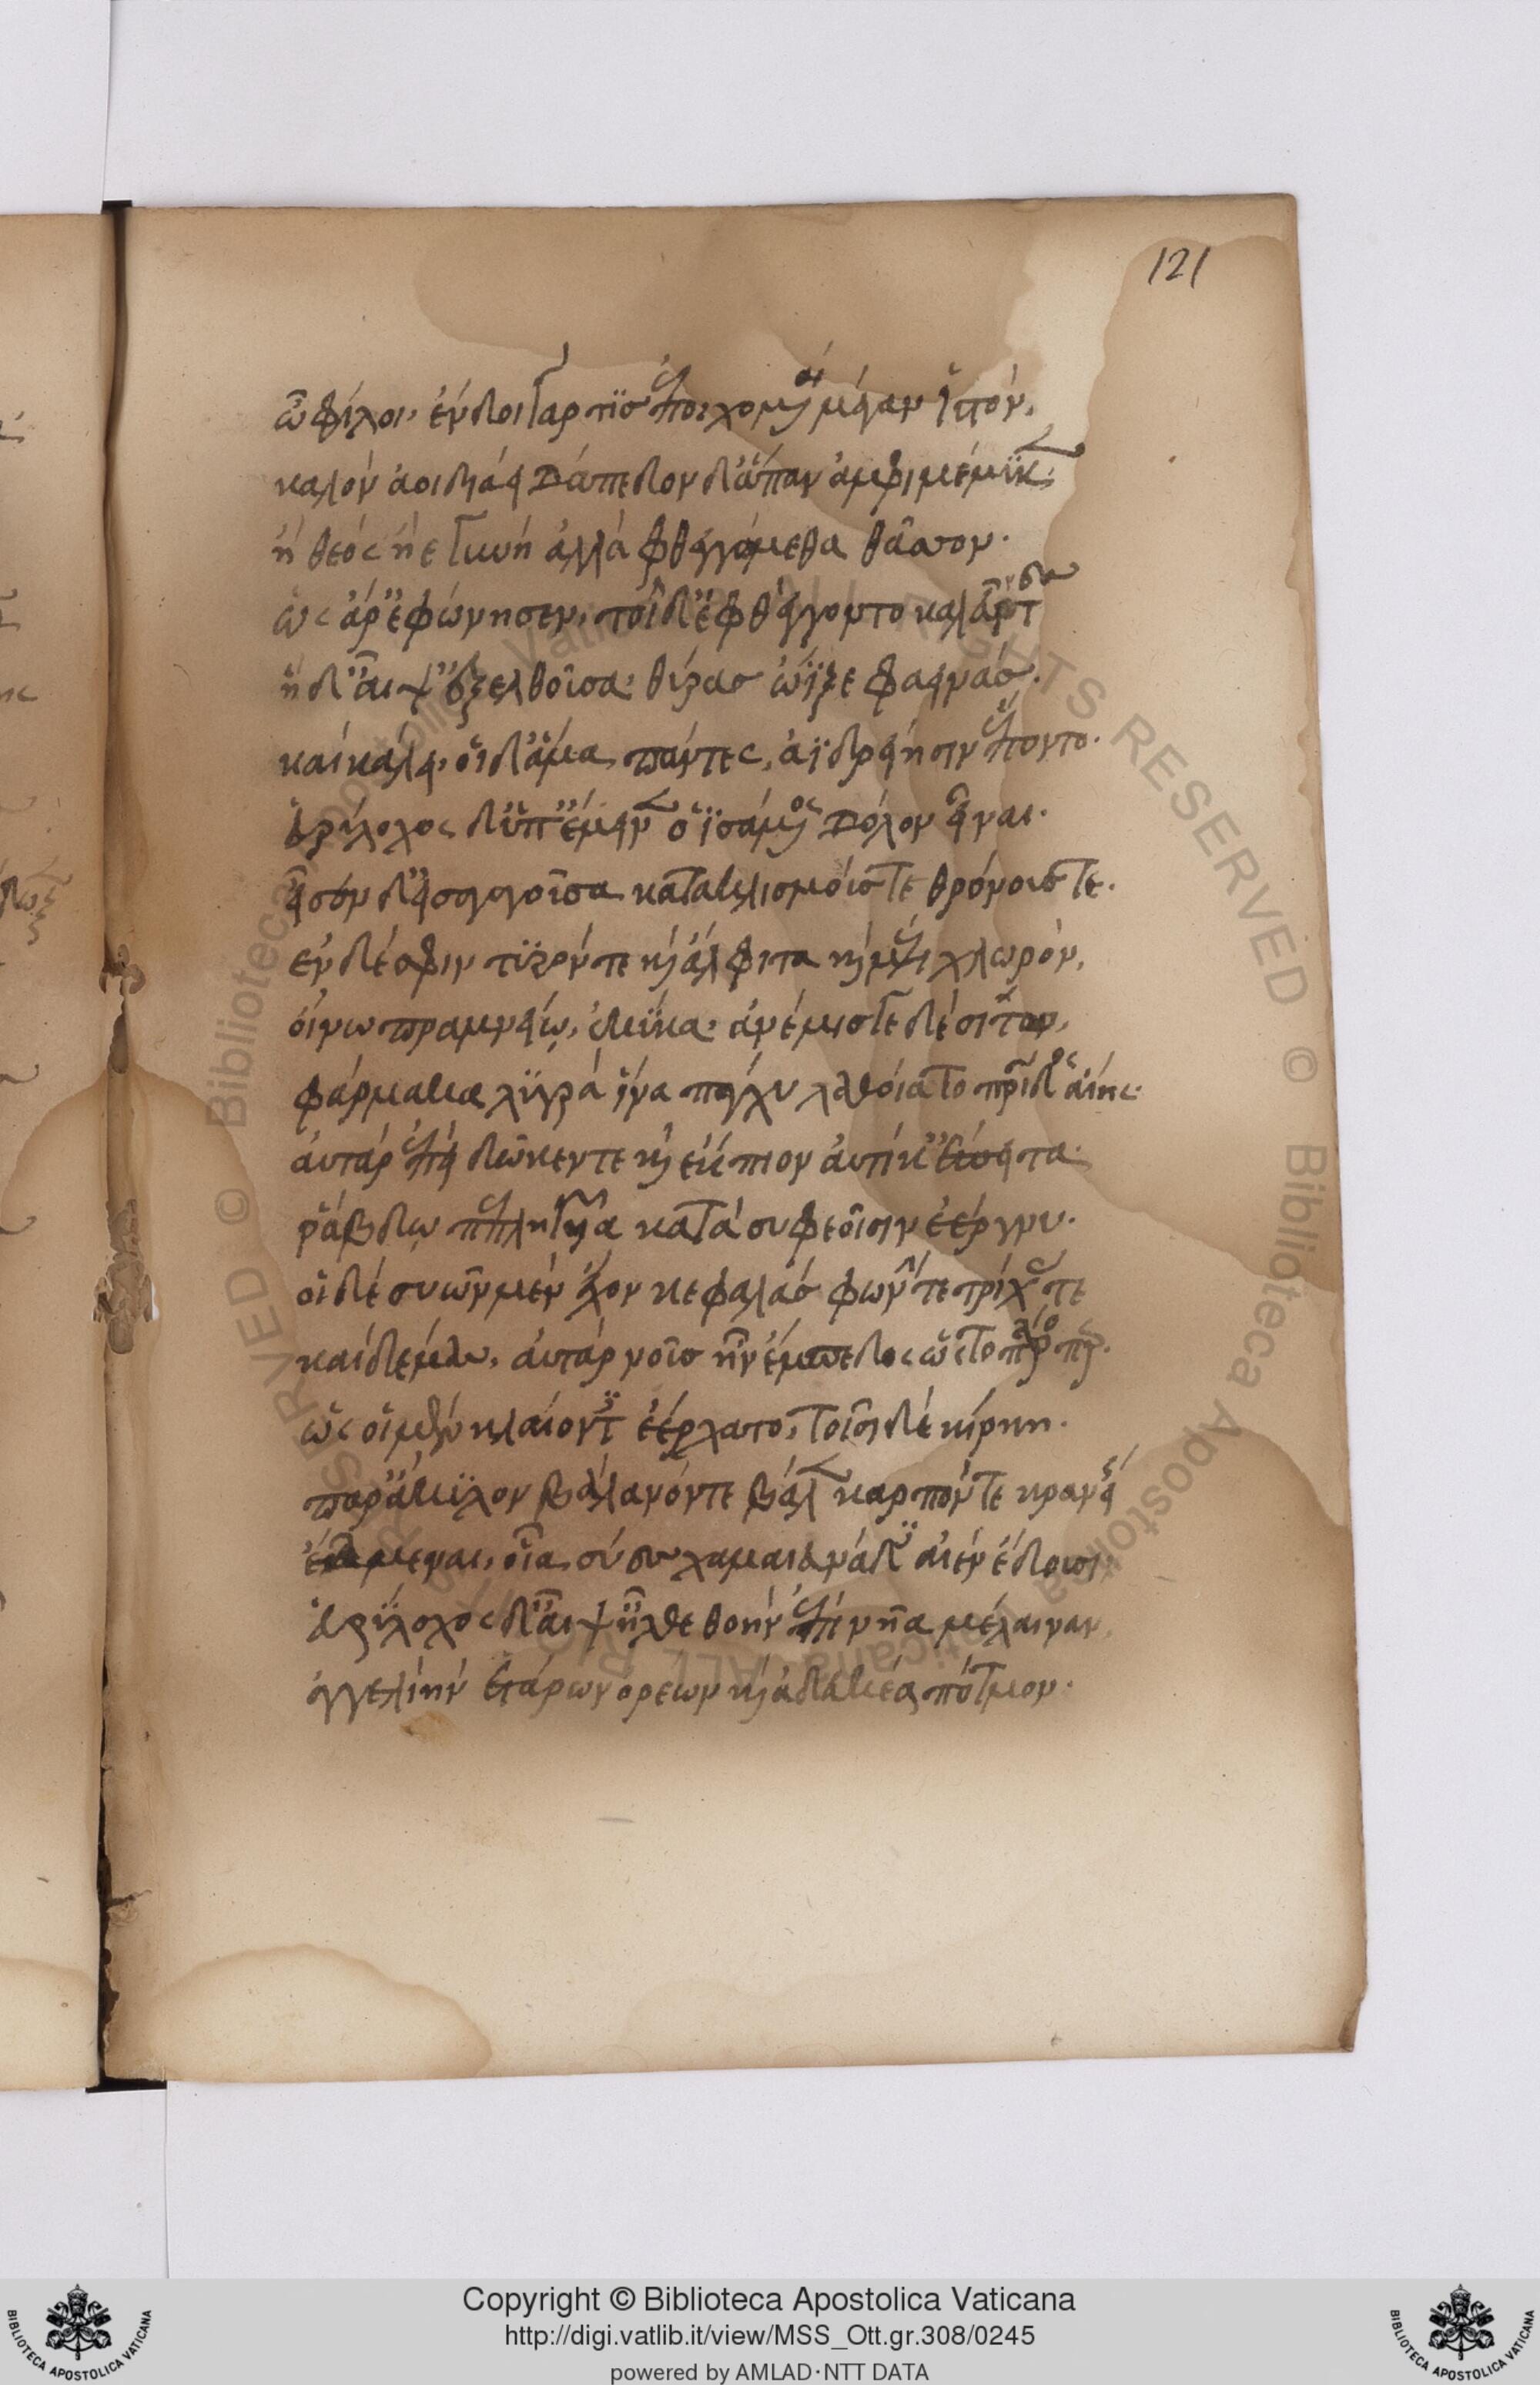 121
ὦ φίλοι· ἔνδοι γάρ τις ἐποιχομένη μέγαν ἱστόν,
καλὸν ἀοιδιάει δάπεδον δ' ἅπαν ἀμφιμέμυκεν·
ἢ θεὸς ἠὲ γυνή ἀλλὰ φθεγγώμεθα θᾶσσον·
ὣς ἄρ' ἐφώνησεν· τοὶ δ' ἐφθέγγοντο καλεῦντες
ἡ δ' αἶψ' ἐξελθοῦσα θύρας ὤϊξε φαεινάς·
καὶ κάλει· οἱ δ' ἅμα πάντες ἀϊδρείῃσιν ἕποντο·
Εὐρύλοχος δ' ὑπέμεινεν ὀϊσάμενος δόλον εἶναι·
εἷσεν δ' εἰσαγαγοῦσα κατὰ κλισμούς τε θρόνους τε·
ἐν δέ σφιν τυρόν τε καὶ ἄλφιτα καὶ μέλι χλωρόν,
οἴνω πραμνείω, ἐκύκα· ἀνέμισγε δὲ σίτω,
φάρμακα λυγρά ἵνα πάγχυ λαθοίατο πατρίδος αἴης·
αὐτὰρ ἐπεὶ δῶκέν τε καὶ ἔκπιον αὐτίκ' ἔπειτα·
ῥάβδω πεπληγυῖα κατὰ συφεοῖσιν ἐέργνυ·
οἱ δὲ συῶν μὲν ἔχον κεφαλὰς φωνήν τε τρίχας τε
καὶ δέμας, αὐτὰρ νοῦς ἦν ἔμπεδος ὡς τὸ πάρος περ·
ὣς οἱ μὲν κλαίοντες ἐέρχατο· τοῖσι δὲ κίρκη·
παρ' ἄκυλον βάλανόν τε βάλεν καρπόν τε κρανείης
ἔδμεναι, οἷα σύες χαμαιευνάδες αἰὲν ἔδουσι·
Εὐρύλοχος δ' αἶψ' ἦλθε θοὴν ἐπὶ νῆα μέλαιναν,
ἀγγελίην ἑτάρων ἐρέων καὶ ἀδευκέα πότμον·
Copyright © Biblioteca Apostolica Vaticana
http://digi.vatlib.it/view/MSS_Ott.gr.308/0245
powered by AMLAD·NTT DATA